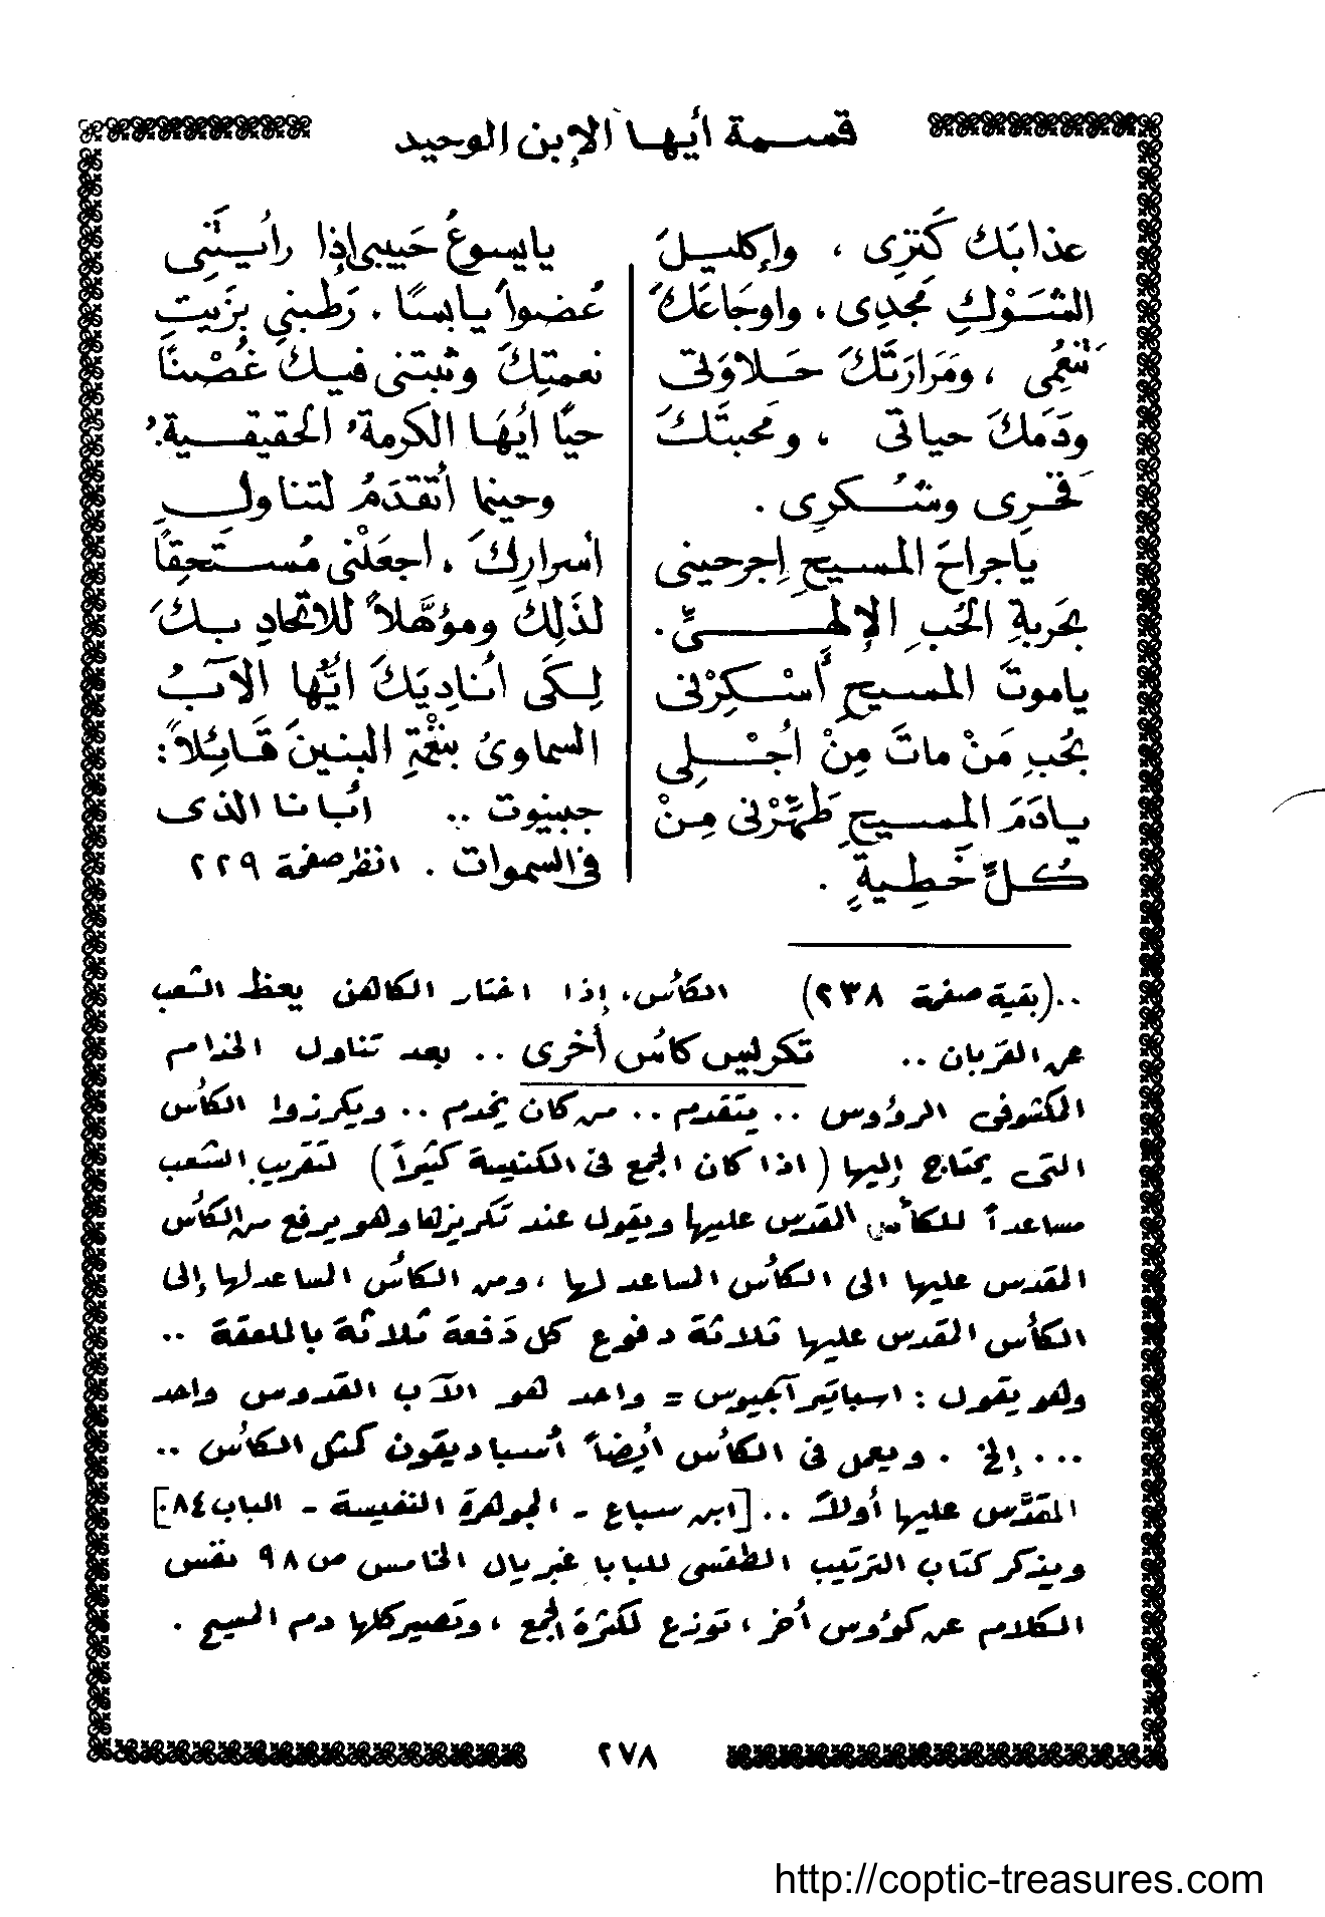 قسمة أيها الإبن الوحيد
عذابَك كَنزِى ، وإكليلَ
الشَوْكِ مَجْدِى ، واوجَاعَكَ
تنعمُِى ، ومَرَارَتَكَ حَلاوَتى
ودَمكَ حياتى ، ومحبتَكَ
فخرِى وشُكرِى .
ياجراحَ المسيحِ اِجرحينى
بحَربةِ الحُبِ الإلهىِّ .
ياموتَ المسيحِ أَسْكِرْنى
بحُبِ مَنْ ماتَ مِنْ أجْلِى
يادَمَ المسيحِ طَهِّرْنى مِنْ
كُلِّ خَطِيةٍ .
يايسوعُ حَبيبى إذا رأيتَنِى
عُضواً يابسًا . رَطبنِى بزَيتِ
نعمتِكَ وثبتنى فيكَ غُصْنًا
حيًا أيُهَا الكرمةُ الحقيقيةُ .
وحينما أتقدَمُ لتناولِ
أسرارِكَ ، اجعَلْنى مُستَحِقاً
لذَلِكَ ومؤهَّلاً للاتحادِ بِكَ
لِكَى أنادِيَكَ ايُّها الآبُ
السماوىُ بنغْمةِ البنينَ قَائِلاً :
جبنيوت .. أبانا الذى
فى السموات . انظر صفحة ٢٢٩
..(بقية صفحة ٢٣٨) الكأس، إذا اختار الكاهن يعظ الشعب
عن القربان .. تكريس كأس أخرى .. بعد تناول الخدام
المكشوفى الرؤوس .. يتقدم .. من كان يخدم .. ويكرزوا الكأس
التى يحتاج إليها ( اذا كان الجمع فى الكنيسة كثيراً ) لتقريب الشعب
مساعداً للكأس المقدس عليها ويقول عند تكريزها وهو يرفع من الكأس
المقدس عليها الى الكأس المساعد لها ، ومن الكأس المساعد لها إلى
الكأس المقدس عليها ثلاثة دفوع كل دَفعة ثلاثة بالملعقة ..
وهو يقول : اسباتير آجيوس = واحد هو الآب القدوس واحد
... إلخ . ويعمل فى الكأس أيضاً أسباديقون كمثل الكأس ..
المقدَّس عليها أولاً .. [ابن سباع - الجوهرة النفيسة - الباب ٨٤]
ويذكر كتاب الترتيب الطقسى للبابا غبريال الخامس ص ٩٨ نفس
الكلام عن كؤوس أخر ، توزع لكثرة الجمع ، وتصير كلها دم المسيح .
٢٧٨
http://coptic-treasures.com